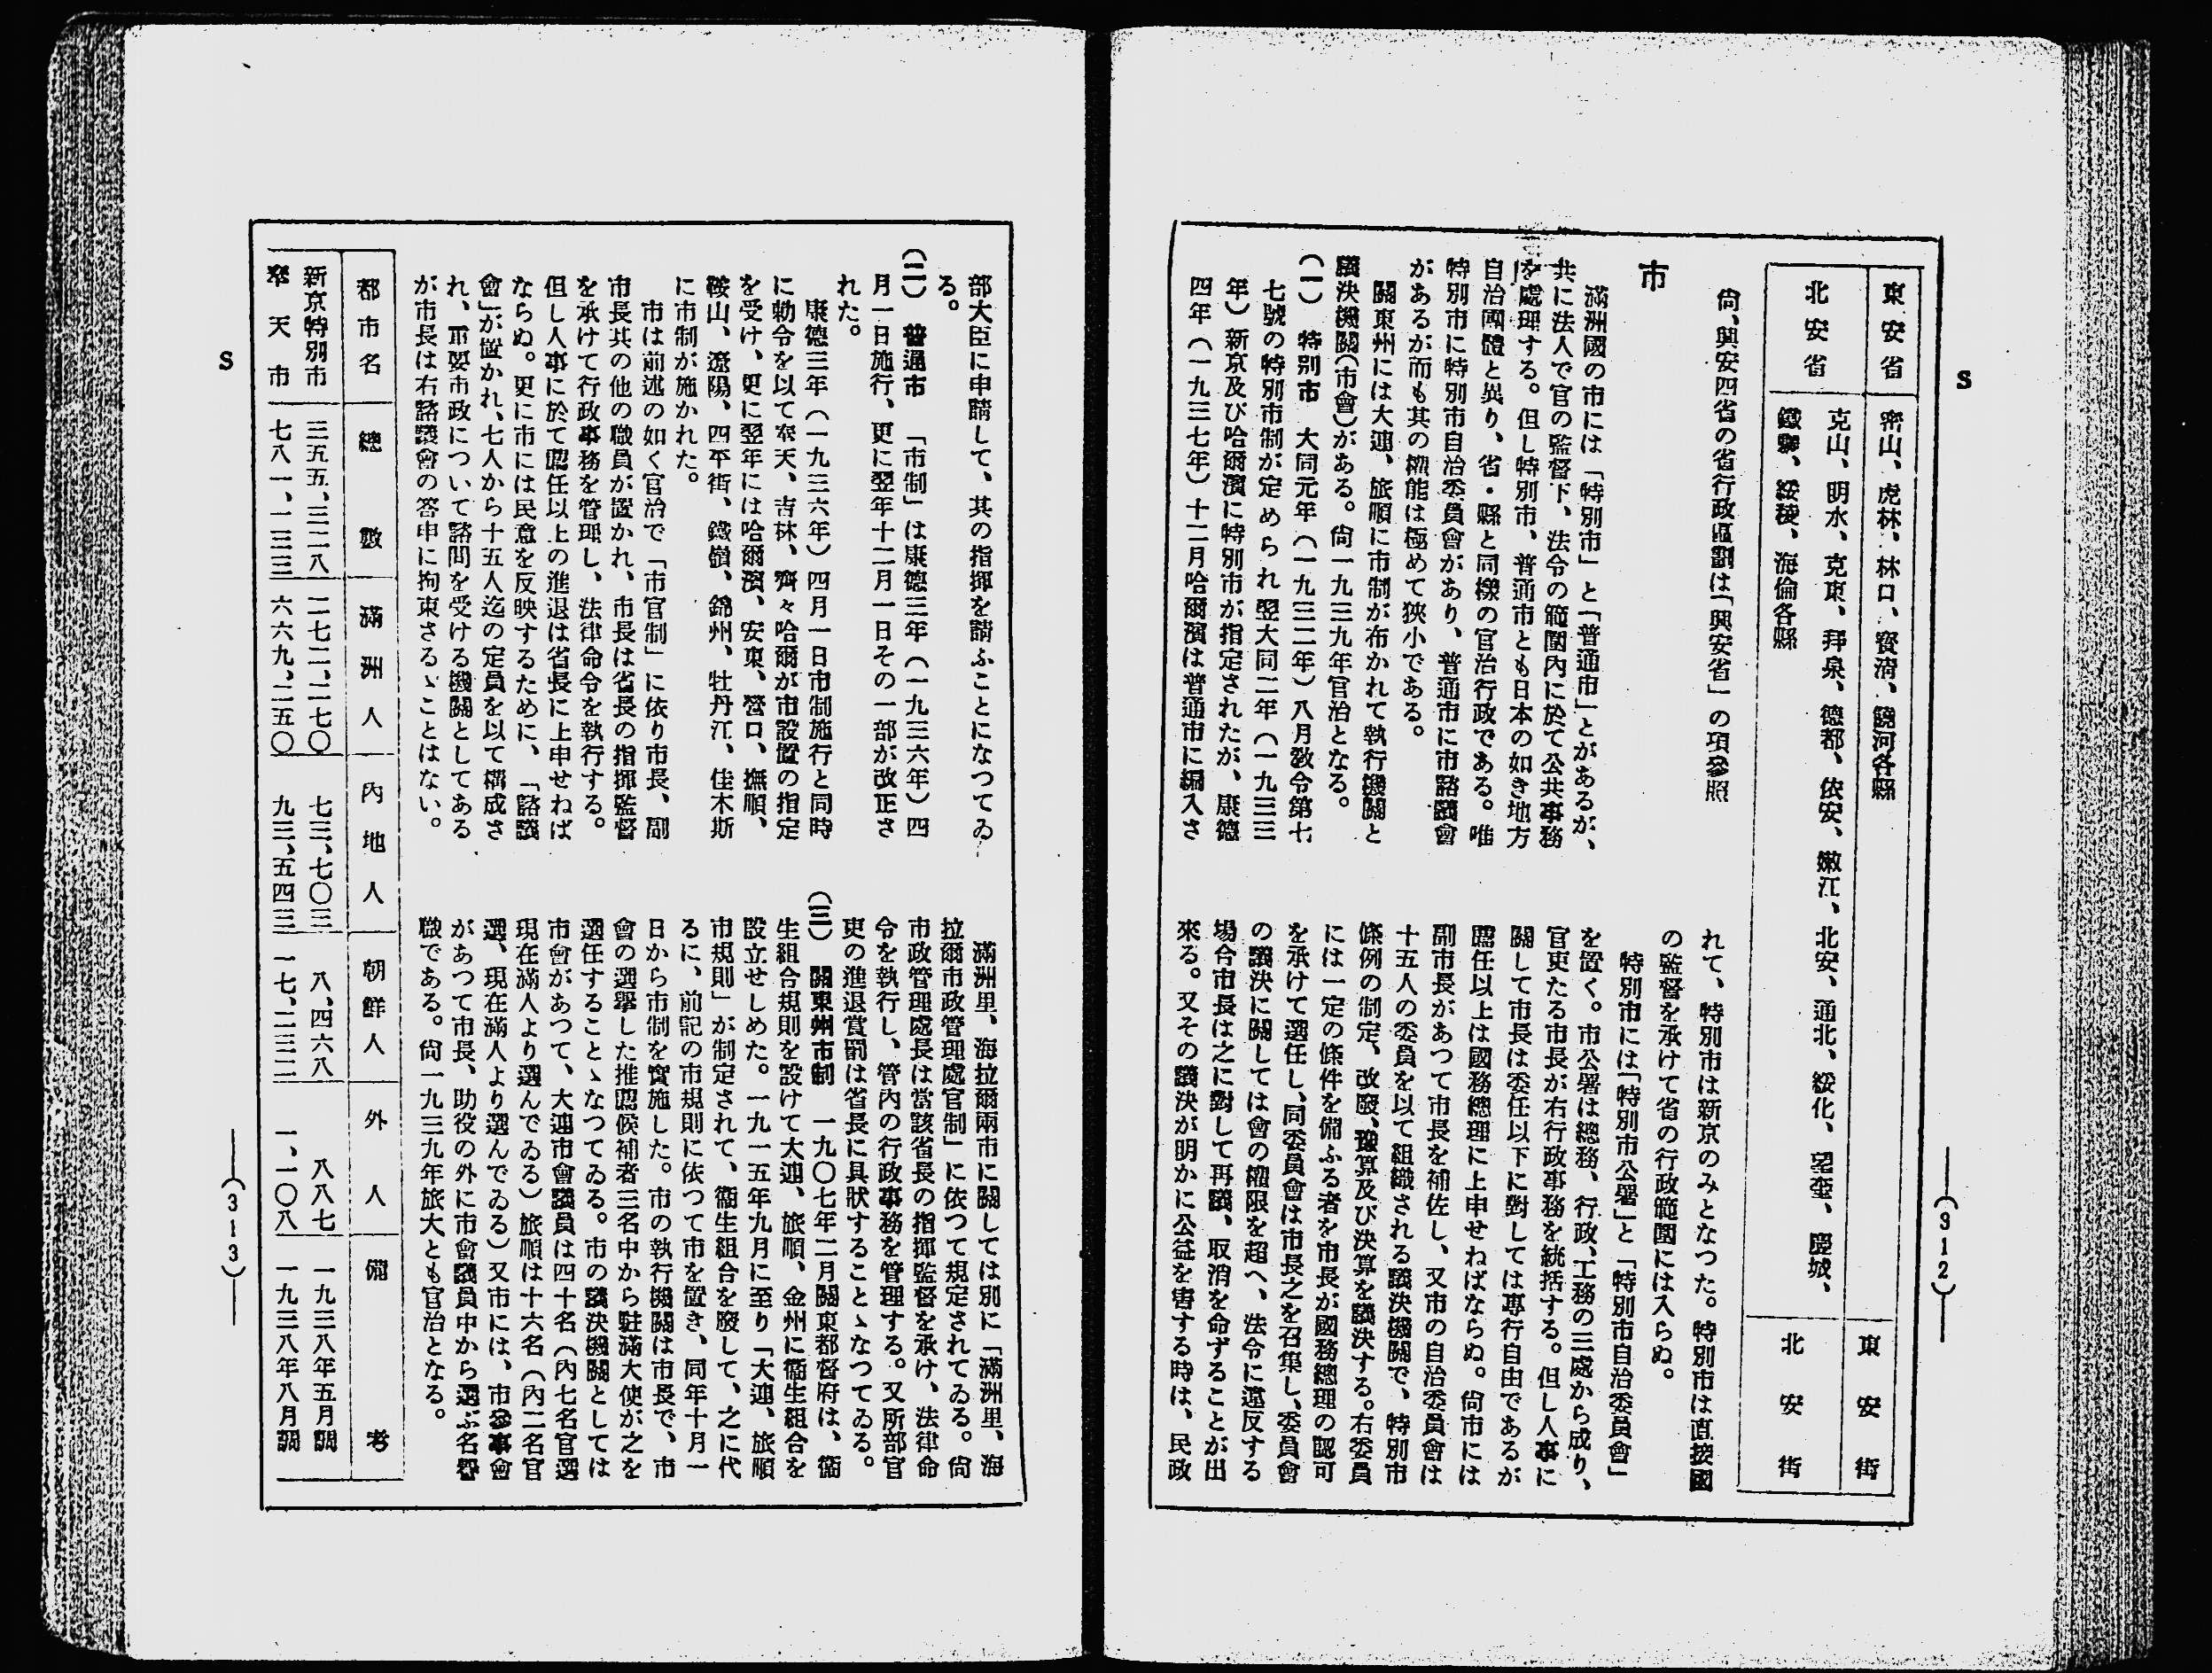 S
東安省
密山、虎林、林口、寶淸、饒河各縣
東安街
北安省
克山、明水、克東、拜泉、德都、依安、嫩江、北安、通北、綏化、望奎、慶城、
鐵驪、綏稜、海倫各縣
北安街
尙、興安四省の省行政區劃は「興安省」の項參照
市
滿洲國の市には「特別市」と「普通市」とがあるが、
共に法人で官の監督下、法令の範圍內に於て公共事務
を處理する。但し特別市、普通市とも日本の如き地方
自治團體と異り、省・縣と同樣の官治行政である。唯
特別市に特別市自治委員會があり、普通市に市諮議會
があるが而も其の權能は極めて狹小である。
關東州には大連、旅順に市制が布かれて執行機關と
議決機關(市會)がある。尙一九三九年官治となる。
(一) 特別市 大同元年(一九三二年)八月敎令第七
七號の特別市制が定められ翌大同二年(一九三三
年)新京及び哈爾濱に特別市が指定されたが、康德
四年(一九三七年)十二月哈爾濱は普通市に編入さ
れて、特別市は新京のみとなつた。特別市は直接國
の監督を承けて省の行政範圍には入らぬ。
特別市には「特別市公署」と「特別市自治委員會」
を置く。市公署は總務、行政、工務の三處から成り、
官吏たる市長が右行政事務を統括する。但し人事に
關して市長は委任以下に對しては專行自由であるが
薦任以上は國務總理に上申せねばならぬ。尙市には
副市長があつて市長を補佐し、又市の自治委員會は
十五人の委員を以て組織される議決機關で、特別市
條例の制定、改廢、豫算及び決算を議決する。右委員
には一定の條件を備ふる者を市長が國務總理の認可
を承けて選任し、同委員會は市長之を召集し、委員會
の議決に關しては會の權限を超へ、法令に違反する
場合市長は之に對して再議、取消を命ずることが出
來る。又その議決が明かに公益を害する時は、民政
(312)
部大臣に申請して、其の指揮を請ふことになつてゐ
る。
(二) 普通市 「市制」は康德三年(一九三六年)四
月一日施行、更に翌年十二月一日その一部が改正さ
れた。
康德三年(一九三六年)四月一日市制施行と同時
に勅令を以て奉天、吉林、齊々哈爾が市設置の指定
を受け、更に翌年には哈爾濱、安東、營口、撫順、
鞍山、遼陽、四平街、鐵嶺、錦州、牡丹江、佳木斯
に市制が施かれた。
市は前述の如く官治で「市官制」に依り市長、副
市長其の他の職員が置かれ、市長は省長の指揮監督
を承けて行政事務を管理し、法律命令を執行する。
但し人事に於て薦任以上の進退は省長に上申せねば
ならぬ。更に市には民意を反映するために、「諮議
會」が置かれ、七人から十五人迄の定員を以て構成さ
れ、重要市政について諮問を受ける機關としてある
が市長は右諮議會の答申に拘束さるゝことはない。
滿洲里、海拉爾兩市に關しては別に「滿洲里、海
拉爾市政管理處官制」に依つて規定されてゐる。尙
市政管理處長は當該省長の指揮監督を承け、法律命
令を執行し、管內の行政事務を管理する。又所部官
吏の進退賞罰は省長に具狀することゝなつてゐる。
(三) 關東州市制 一九〇七年二月關東都督府は、衞
生組合規則を設けて大連、旅順、金州に衞生組合を
設立せしめた。一九一五年九月に至り「大連、旅順
市規則」が制定されて、衞生組合を廢して、之に代
るに、前記の市規則に依つて市を置き、同年十月一
日から市制を實施した。市の執行機關は市長で、市
會の選擧した推薦候補者三名中から駐滿大使が之を
選任することゝなつてゐる。市の議決機關としては
市會があつて、大連市會議員は四十名(內七名官選
現在滿人より選んでゐる)旅順は十六名(內二名官
選、現在滿人より選んでゐる)又市には、市參事會
があつて市長、助役の外に市會議員中から選ぶ名譽
職である。尙一九三九年旅大とも官治となる。
都市名 總數 滿洲人 內地人 朝鮮人 外人 備考
新京特別市 三五五、三二八 二七二、二七〇 七三、七〇三 八、四六八 八八七 一九三八年五月調
奉天市 七八一、一三三 六六九、二五〇 九三、五四三 一七、二三二 一、一〇八 一九三八年八月調
S
(313)